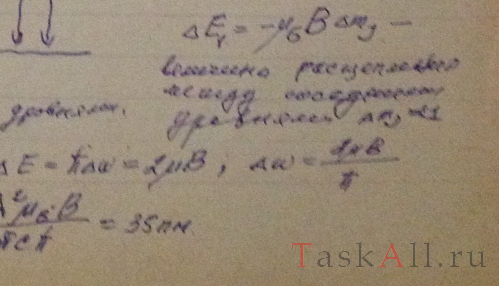 ΔE₁ = -μ_Б B Δm_J —
величина расщепления
между соседними
уровнями. уровнями Δm_J = 1
ΔE = ħΔω = 2μB ; Δω = 2μB / ħ
μ_Б B = 35 пм.
TaskAll.ru